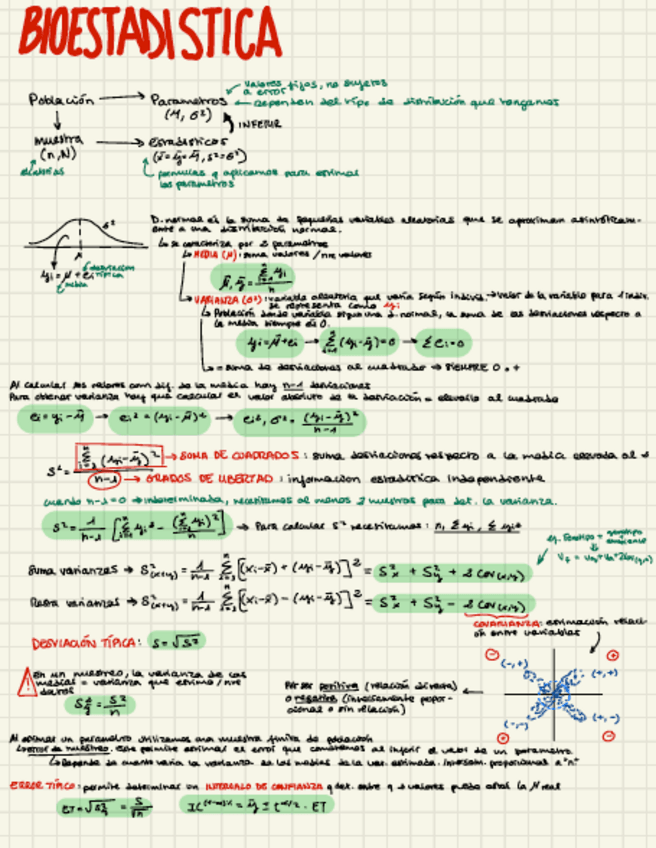 BIOESTADISTICA
Población → Parametros ← valores fijos, no sujetos a error
(M, σ²) ← dependen del tipo de distribución que tengamos
↓ INFERIR
muestra → estadísticos
(n,N)
aleatorias formulas q aplicamos para estimar
los parametros
D. normal es la suma de pequeñas variables aleatorias que se aproximan asintóticam-
ente a una distribución normal.
↳ se caracteriza por 2 parametros
↳ MEDIA (M): suma valores / nre valores
desviación típica
media
↳ VARIANZA (σ²): variable aleatoria que varía según indiv. → valor de la variable para 1 indiv.
se representa como yi
↳ Población donde variable sigue una d. normal, la suma de las desviaciones respecto a
la media siempre es 0.
→ Σei=0
↳ = suma de desviaciones al cuadrado → SIEMPRE 0 o +
Al calcular los valores com dif. de la media hay n-1 desviaciones
Para obtener varianza hay que calcular el valor absoluto de la desviación = elevarlo al cuadrado
→ SUMA DE CUADRADOS: suma desviaciones respecto a la media elevada al
n-1 → GRADOS DE LIBERTAD: información estadística independiente
cuando n-1=0 → indeterminada, necesitamos al menos 2 muestras para det. la varianza.
→ Para calcular S² necesitamos: n, Σyi, Σyi²
Suma varianzas → S²(x+y) = 1/n-1 Σ[(xi-x̄)+(yi-ȳ)]² = S²x + S²y + 2 COV(x,y)
Resta varianzas → S²(x-y) = 1/n-1 Σ[(xi-x̄)-(yi-ȳ)]² = S²x + S²y - 2 COV(x,y)
COVARIANZA: estimación relaci-
ón entre variables
DESVIACIÓN TÍPICA: S=√S²
En un muestreo, la varianza de las
medias = varianza que estimo / nre
datos
Puede ser positiva (relación directa)
o negativa (inversamente propor-
cional o sin relación)
(-,+) (+,+)
(-,-) (+,-)
Al estimar un parametro utilizamos una muestra finita de población
↳ error de muestreo. Este permite estimar el error que cometemos al inferir el valor de un parametro
↳ Depende de cuanto varia la varianza en las medias de la var. estimada. Inversam. proporcional a "n"
ERROR TÍPICO: permite determinar un INTERVALO DE CONFIANZA